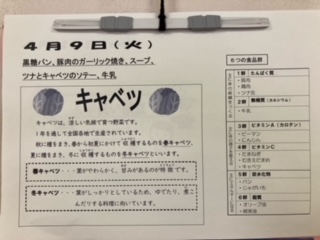 4月9日(火)
黒糖パン、豚肉のガーリック焼き、スープ、
ツナとキャベツのソテー、牛乳
キャベツ
キャベツは、涼しい気候で育つ野菜です。
1年を通して全国各地で生産されています。
秋に種をまき、春から初夏にかけて収穫するものを春キャベツ、
夏に種をまき、冬に収穫するものを冬キャベツといいます。
春キャベツ・・・葉がやわらかく、甘みがあるのが特徴です。
冬キャベツ・・・葉がしっかりとしているため、ゆでたり、煮こ
んだりする料理に向いています。
6つの食品群
1群:たんぱく質
・豚肉
・鶏肉
・ツナ缶
2群:無機質(カルシウム)
・牛乳
3群:ビタミンA(カロテン)
・ピーマン
・にんじん
4群:ビタミンC
・たまねぎ
・キャベツ
5群:炭水化物
・パン
・じゃがいも
6群:脂質
・オリーブ油